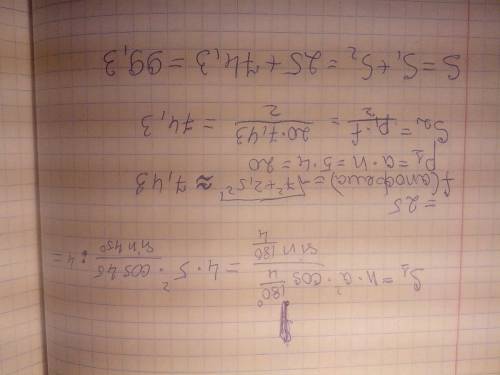 S₁ = n · a² · cos 180°/4 / sin 180/4 = 4 · 5² · cos 45 / sin 45° : 4 =
= 25
f(апофема) = √7² + 2,5² ≈ 7,43
P₁ = a · n = 5 · 4 = 20
S₂ = P · f / 2 = 20 · 7,43 / 2 = 74,3
S = S₁ + S₂ = 25 + 74,3 = 99,3